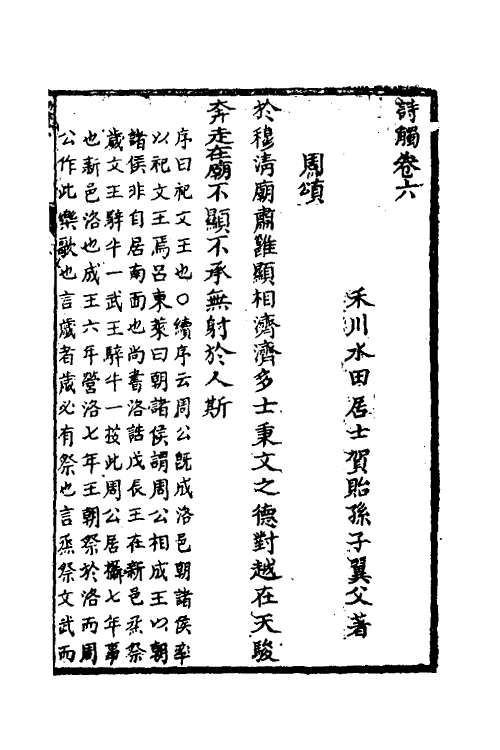 詩觸卷六
禾川水田居士賀貽孫子翼父著
周頌
於穆清廟肅雝顯相濟濟多士秉文之德對越在天駿
奔走在廟不顯不承無射於人斯
序曰祀文王也○續序云周公既成洛邑朝諸侯率
以祀文王焉呂東萊曰朝諸侯謂周公相成王以朝
諸侯非自居南面也尚書洛誥戊辰王在新邑烝祭
歲文王騂牛一武王騂牛一按此周公居攝七年事
也新邑洛也成王六年營洛七年王朝祭於洛而周
公作此樂歌也言歲者歲必有祭也言烝祭文武而